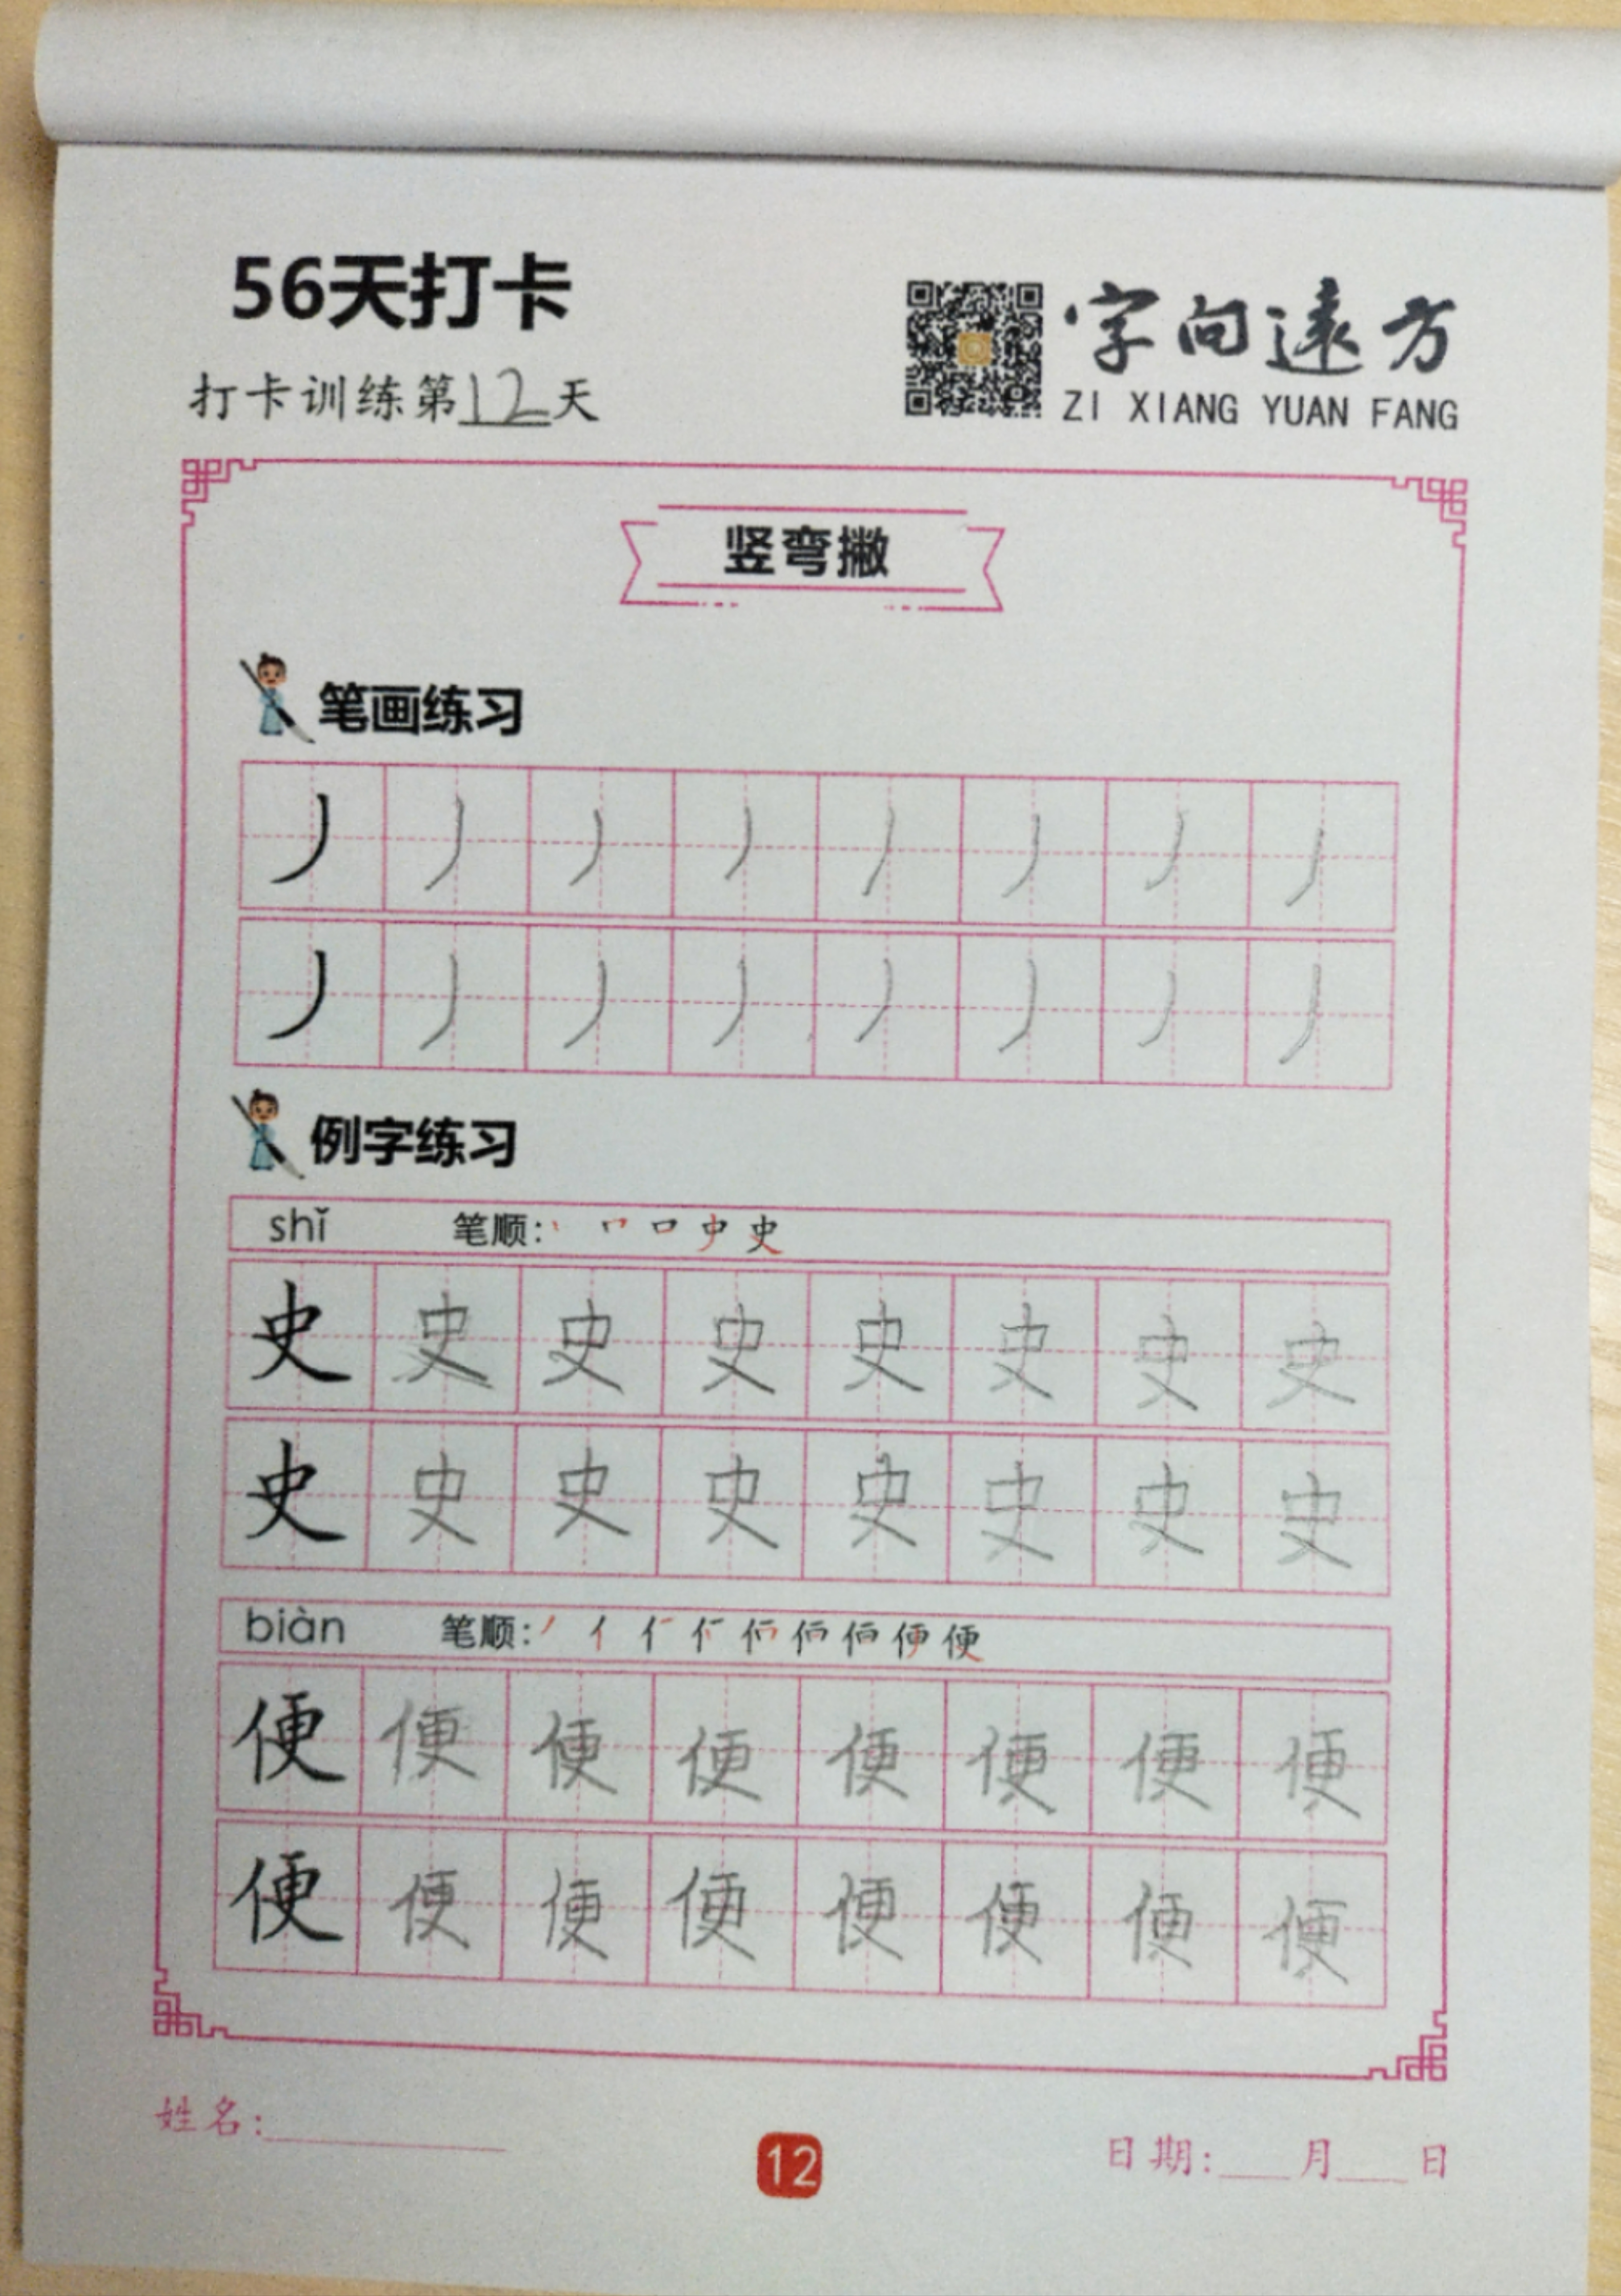 56天打卡
字向遠方
打卡训练第12天
ZI XIANG YUAN FANG
竖弯撇
笔画练习
丿 丿 丿 丿 丿 丿 丿 丿
丿 丿 丿 丿 丿 丿 丿 丿
例字练习
shǐ 笔顺: 丨 ㇕ 口 史 史
史 史 史 史 史 史 史 史
史 史 史 史 史 史 史 史
biàn 笔顺: 丿 亻 便
便 便 便 便 便 便 便 便
便 便 便 便 便 便 便 便
姓名:
12
日期: 月 日